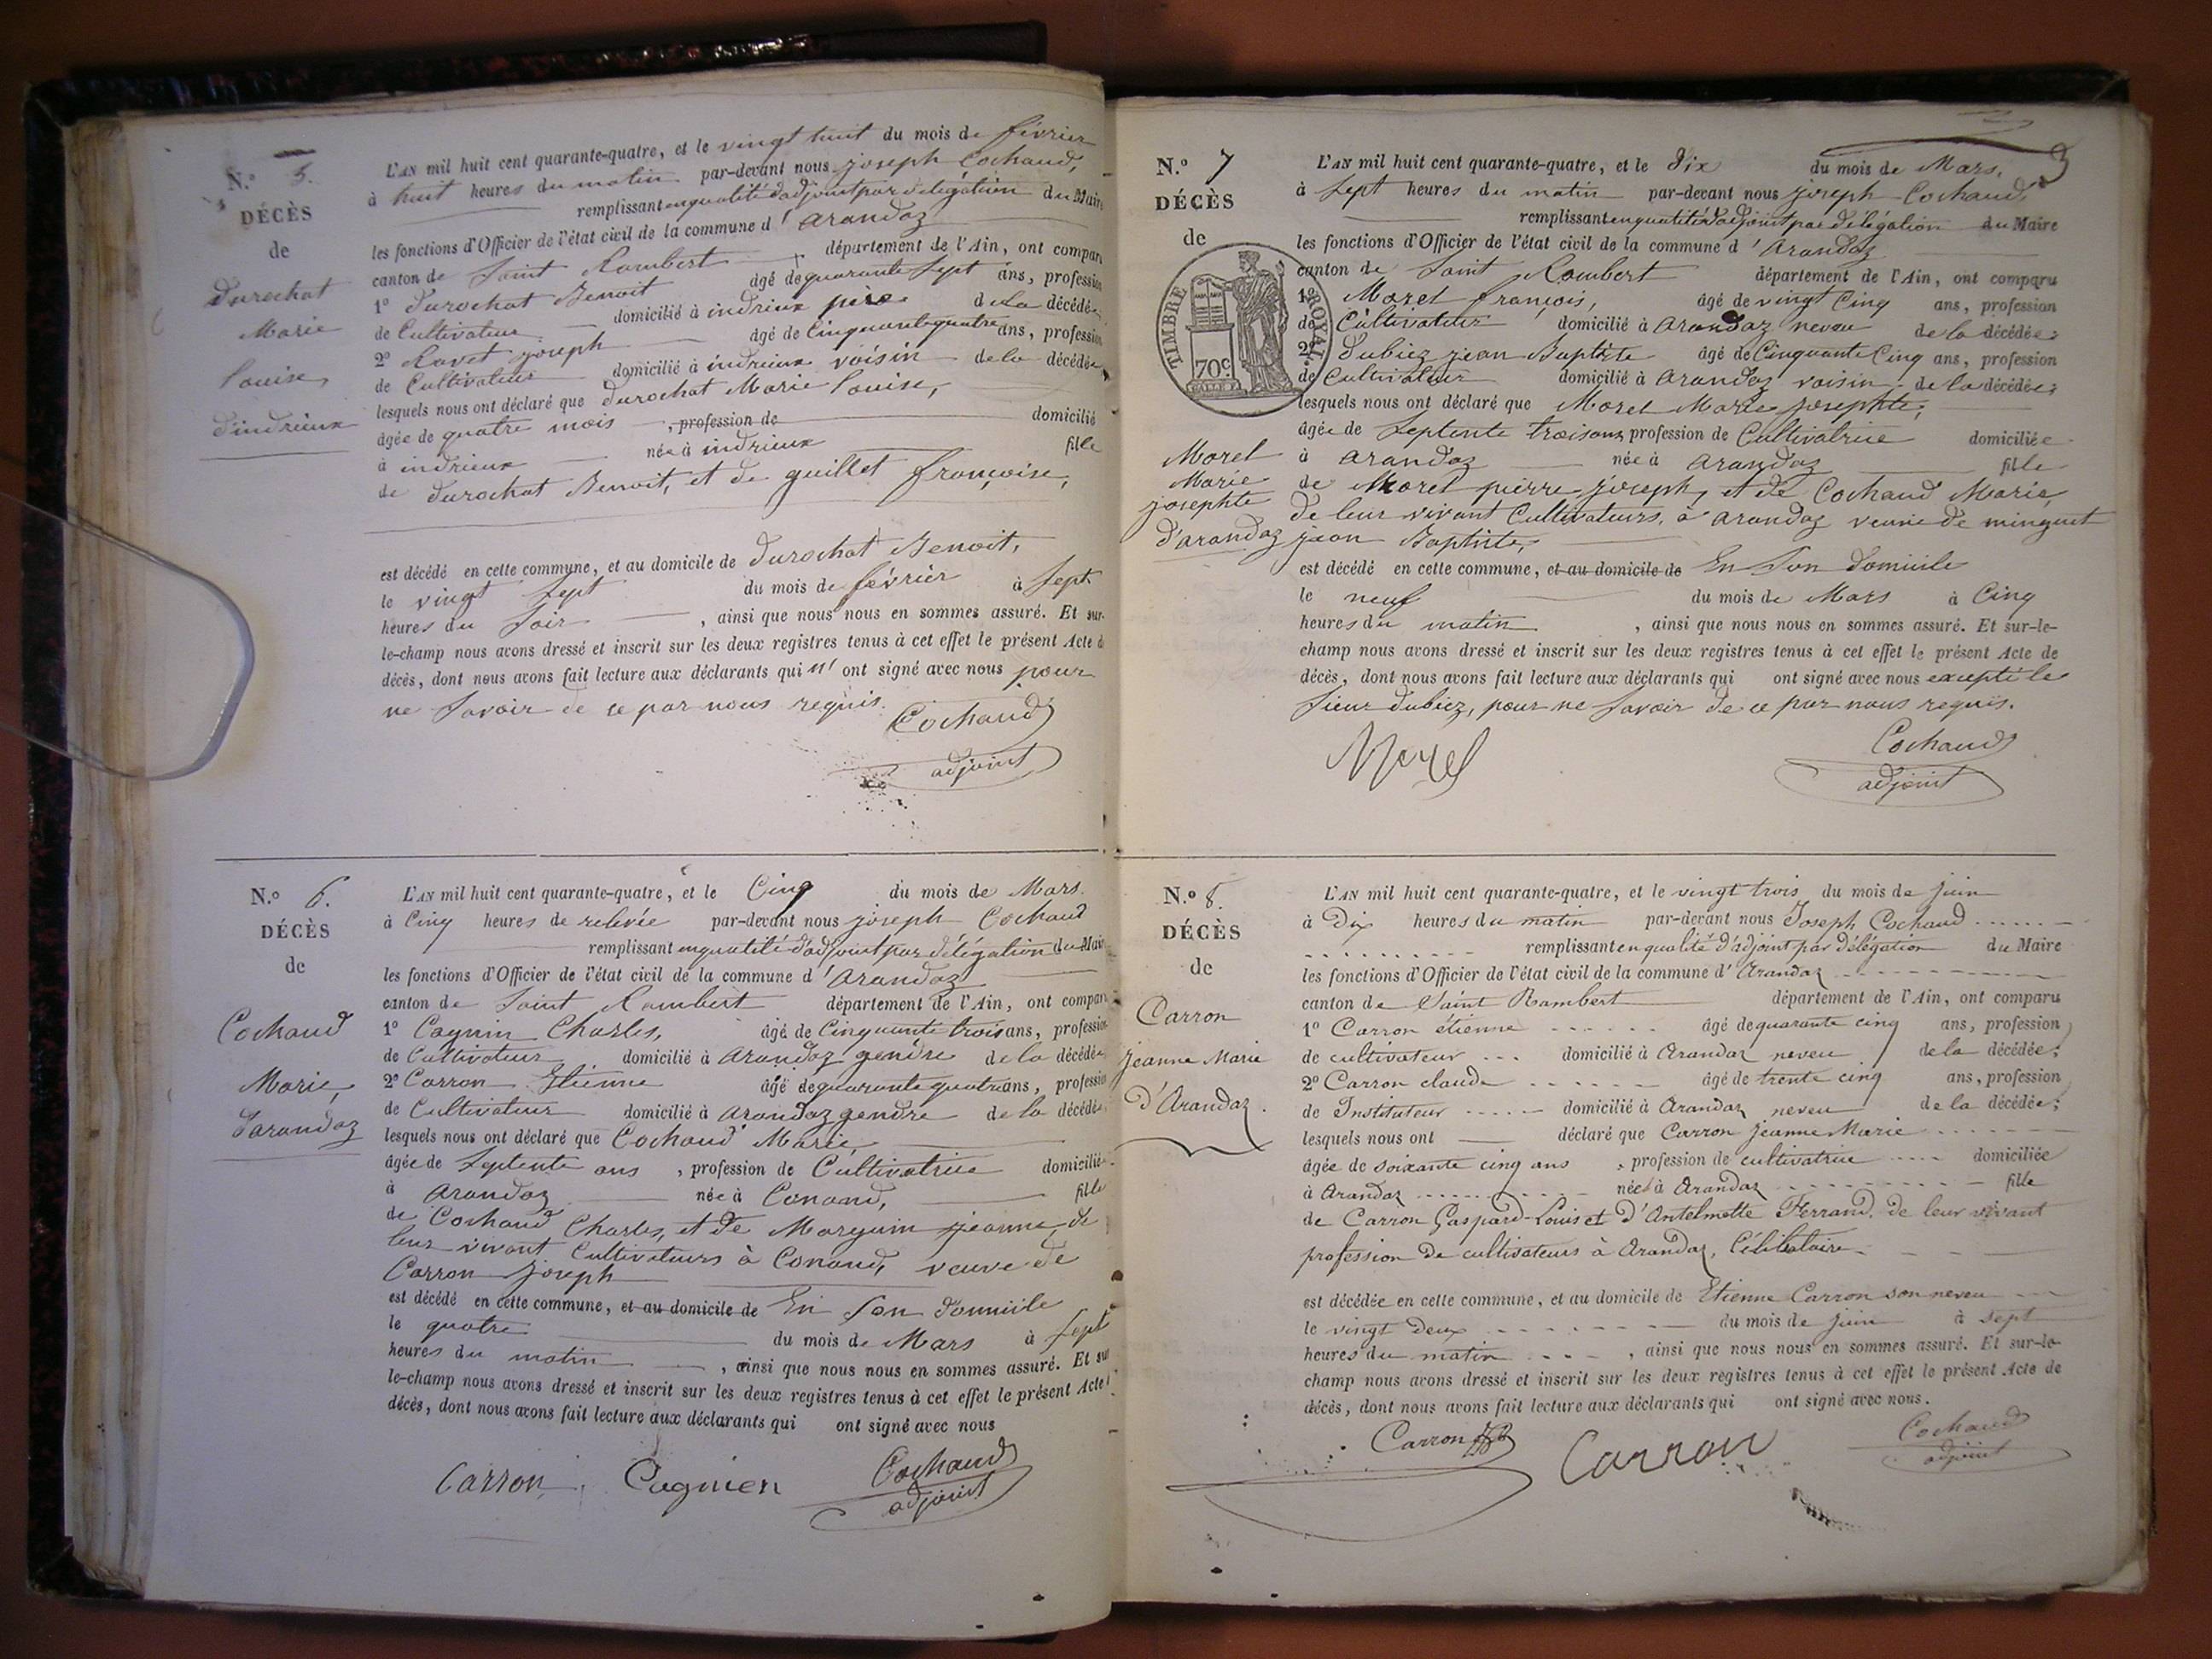 N.° 5.
DÉCÈS
de
Durochat
Marie
Louise,
d'indrieux
L'AN mil huit cent quarante-quatre, et le vingt huit du mois de février
à huit heures du matin par-devant nous joseph Cochaud,
remplissant en qualité d'adjoint par délégation du Maire
les fonctions d'Officier de l'état civil de la commune d'arandaz
canton de Saint Rambert département de l'Ain, ont comparu
1° Durochat Benoit âgé de quarante sept ans, profession
de Cultivateur domicilié à indrieux père de la décédée
2° Ravet joseph âgé de Cinquante quatre ans, profession
de Cultivateur domicilié à indrieux voisin de la décédée
lesquels nous ont déclaré que Durochat Marie Louise,
âgée de quatre mois , profession de domicilié
à indrieux née à indrieux fille
de Durochat Benoit, et de guillet françoise,
est décédé en cette commune, et au domicile de Durochat Benoit,
le vingt sept du mois de février à sept
heures du soir , ainsi que nous nous en sommes assuré. Et sur-
le-champ nous avons dressé et inscrit sur les deux registres tenus à cet effet le présent Acte de
décès, dont nous avons fait lecture aux déclarants qui n' ont signé avec nous pour
ne savoir de ce par nous requis.
Cochaud
adjoint
N.° 6.
DÉCÈS
de
Cochaud
Marie,
d'arandaz
L'AN mil huit cent quarante-quatre, et le Cinq du mois de Mars
à Cinq heures de relevée par-devant nous joseph Cochaud
remplissant en qualité d'adjoint par délégation du Maire
les fonctions d'Officier de l'état civil de la commune d'Arandaz
canton de Saint Rambert département de l'Ain, ont comparu
1° Cognin Charles, âgé de Cinquante trois ans, profession
de Cultivateur domicilié à Arandaz gendre de la décédée
2° Carron Etienne âgé de quarante quatre ans, profession
de Cultivateur domicilié à Arandaz gendre de la décédée
lesquels nous ont déclaré que Cochaud Marie,
âgée de Septente ans , profession de Cultivatrice domiciliée
à Arandaz née à Conand, fille
de Cochaud Charles, et de Marguin jeanne de
leur vivant Cultivateurs à Conand, veuve de
Carron joseph
est décédé en cette commune, et au domicile de En Son domicile
le quatre du mois de Mars à sept
heures du matin , ainsi que nous nous en sommes assuré. Et sur
le-champ nous avons dressé et inscrit sur les deux registres tenus à cet effet le présent Acte
décès, dont nous avons fait lecture aux déclarants qui ont signé avec nous
Carron Cugnien Cochaud
adjoint
3
N.° 7
DÉCÈS
de
TIMBRE ROYAL
70 c.
Morel
Marie
josephte
d'arandaz
L'AN mil huit cent quarante-quatre, et le Dix du mois de Mars,
à Sept heures du matin par-devant nous joseph Cochaud,
remplissant en qualité d'adjoint par délégation du Maire
les fonctions d'Officier de l'état civil de la commune d'Arandaz
canton de Saint Rambert département de l'Ain, ont comparu
1° Morel françois, âgé de vingt Cinq ans, profession
de Cultivateur domicilié à Arandaz neveu de la décédée;
2° Dubiez jean Baptiste âgé de Cinquante Cinq ans, profession
de Cultivateur domicilié à Arandaz voisin de la décédée;
lesquels nous ont déclaré que Morel Marie josephte;
âgée de Septente trois ans profession de Cultivatrice domiciliée
à Arandaz née à Arandaz fille
de Morel pierre joseph, et de Cochaud Marie,
de leur vivant Cultivateurs, à Arandaz veuve de minguet
jean Baptiste,
est décédé en cette commune, et au domicile de En Son domicile
le neuf du mois de Mars à Cinq
heures du matin , ainsi que nous nous en sommes assuré. Et sur-le-
champ nous avons dressé et inscrit sur les deux registres tenus à cet effet le présent Acte de
décès, dont nous avons fait lecture aux déclarants qui ont signé avec nous excepté le
sieur Dubiez, pour ne savoir de ce par nous requis.
Morel Cochaud
adjoint
N.° 8.
DÉCÈS
de
Carron
Jeanne Marie
D'Arandaz.
L'AN mil huit cent quarante-quatre, et le vingt trois du mois de juin
à Dix heures du matin par-devant nous Joseph Cochaud
remplissant en qualité d'adjoint par délégation du Maire
les fonctions d'Officier de l'état civil de la commune d'Arandaz
canton de Saint Rambert département de l'Ain, ont comparu
1° Carron étienne âgé de quarante cinq ans, profession
de cultivateur domicilié à Arandaz neveu de la décédée;
2° Carron claude âgé de trente cinq ans, profession
de Instituteur domicilié à Arandaz neveu de la décédée;
lesquels nous ont déclaré que Carron Jeanne Marie
âgée de soixante cinq ans , profession de cultivatrice domiciliée
à Arandaz née à Arandaz fille
de Carron Gaspard-Louis et d'Antelmette Ferrand. de leur vivant
profession de cultivateurs à Arandaz, Célibataire
est décédée en cette commune, et au domicile de Etienne Carron son neveu
le vingt Deux du mois de juin à sept
heures du matin , ainsi que nous nous en sommes assuré. Et sur-le-
champ nous avons dressé et inscrit sur les deux registres tenus à cet effet le présent Acte de
décès, dont nous avons fait lecture aux déclarants qui ont signé avec nous.
Carron Carron Cochaud
adjoint